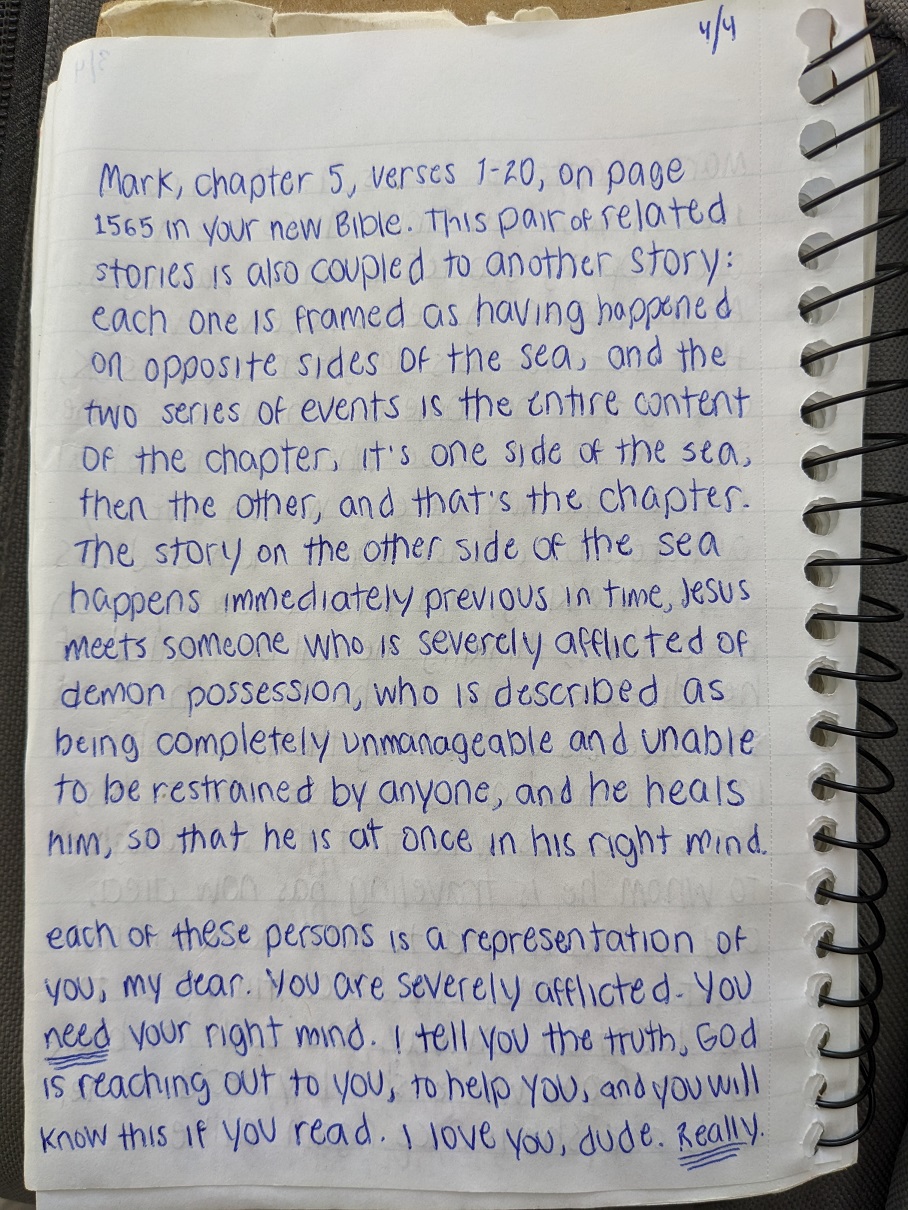 4/4
Mark, chapter 5, verses 1-20, on page
1565 in your new Bible. This pair of related
stories is also coupled to another story:
each one is framed as having happened
on opposite sides of the sea, and the
two series of events is the entire content
of the chapter, it's one side of the sea,
then the other, and that's the chapter.
The story on the other side of the sea
happens immediately previous in time, Jesus
meets someone who is severely afflicted of
demon possession, who is described as
being completely unmanageable and unable
to be restrained by anyone, and he heals
him, so that he is at once in his right mind.
each of these persons is a representation of
you, my dear. You are severely afflicted. You
need your right mind. I tell you the truth, God
is reaching out to you, to help you, and you will
know this if you read. I love you, dude. Really.